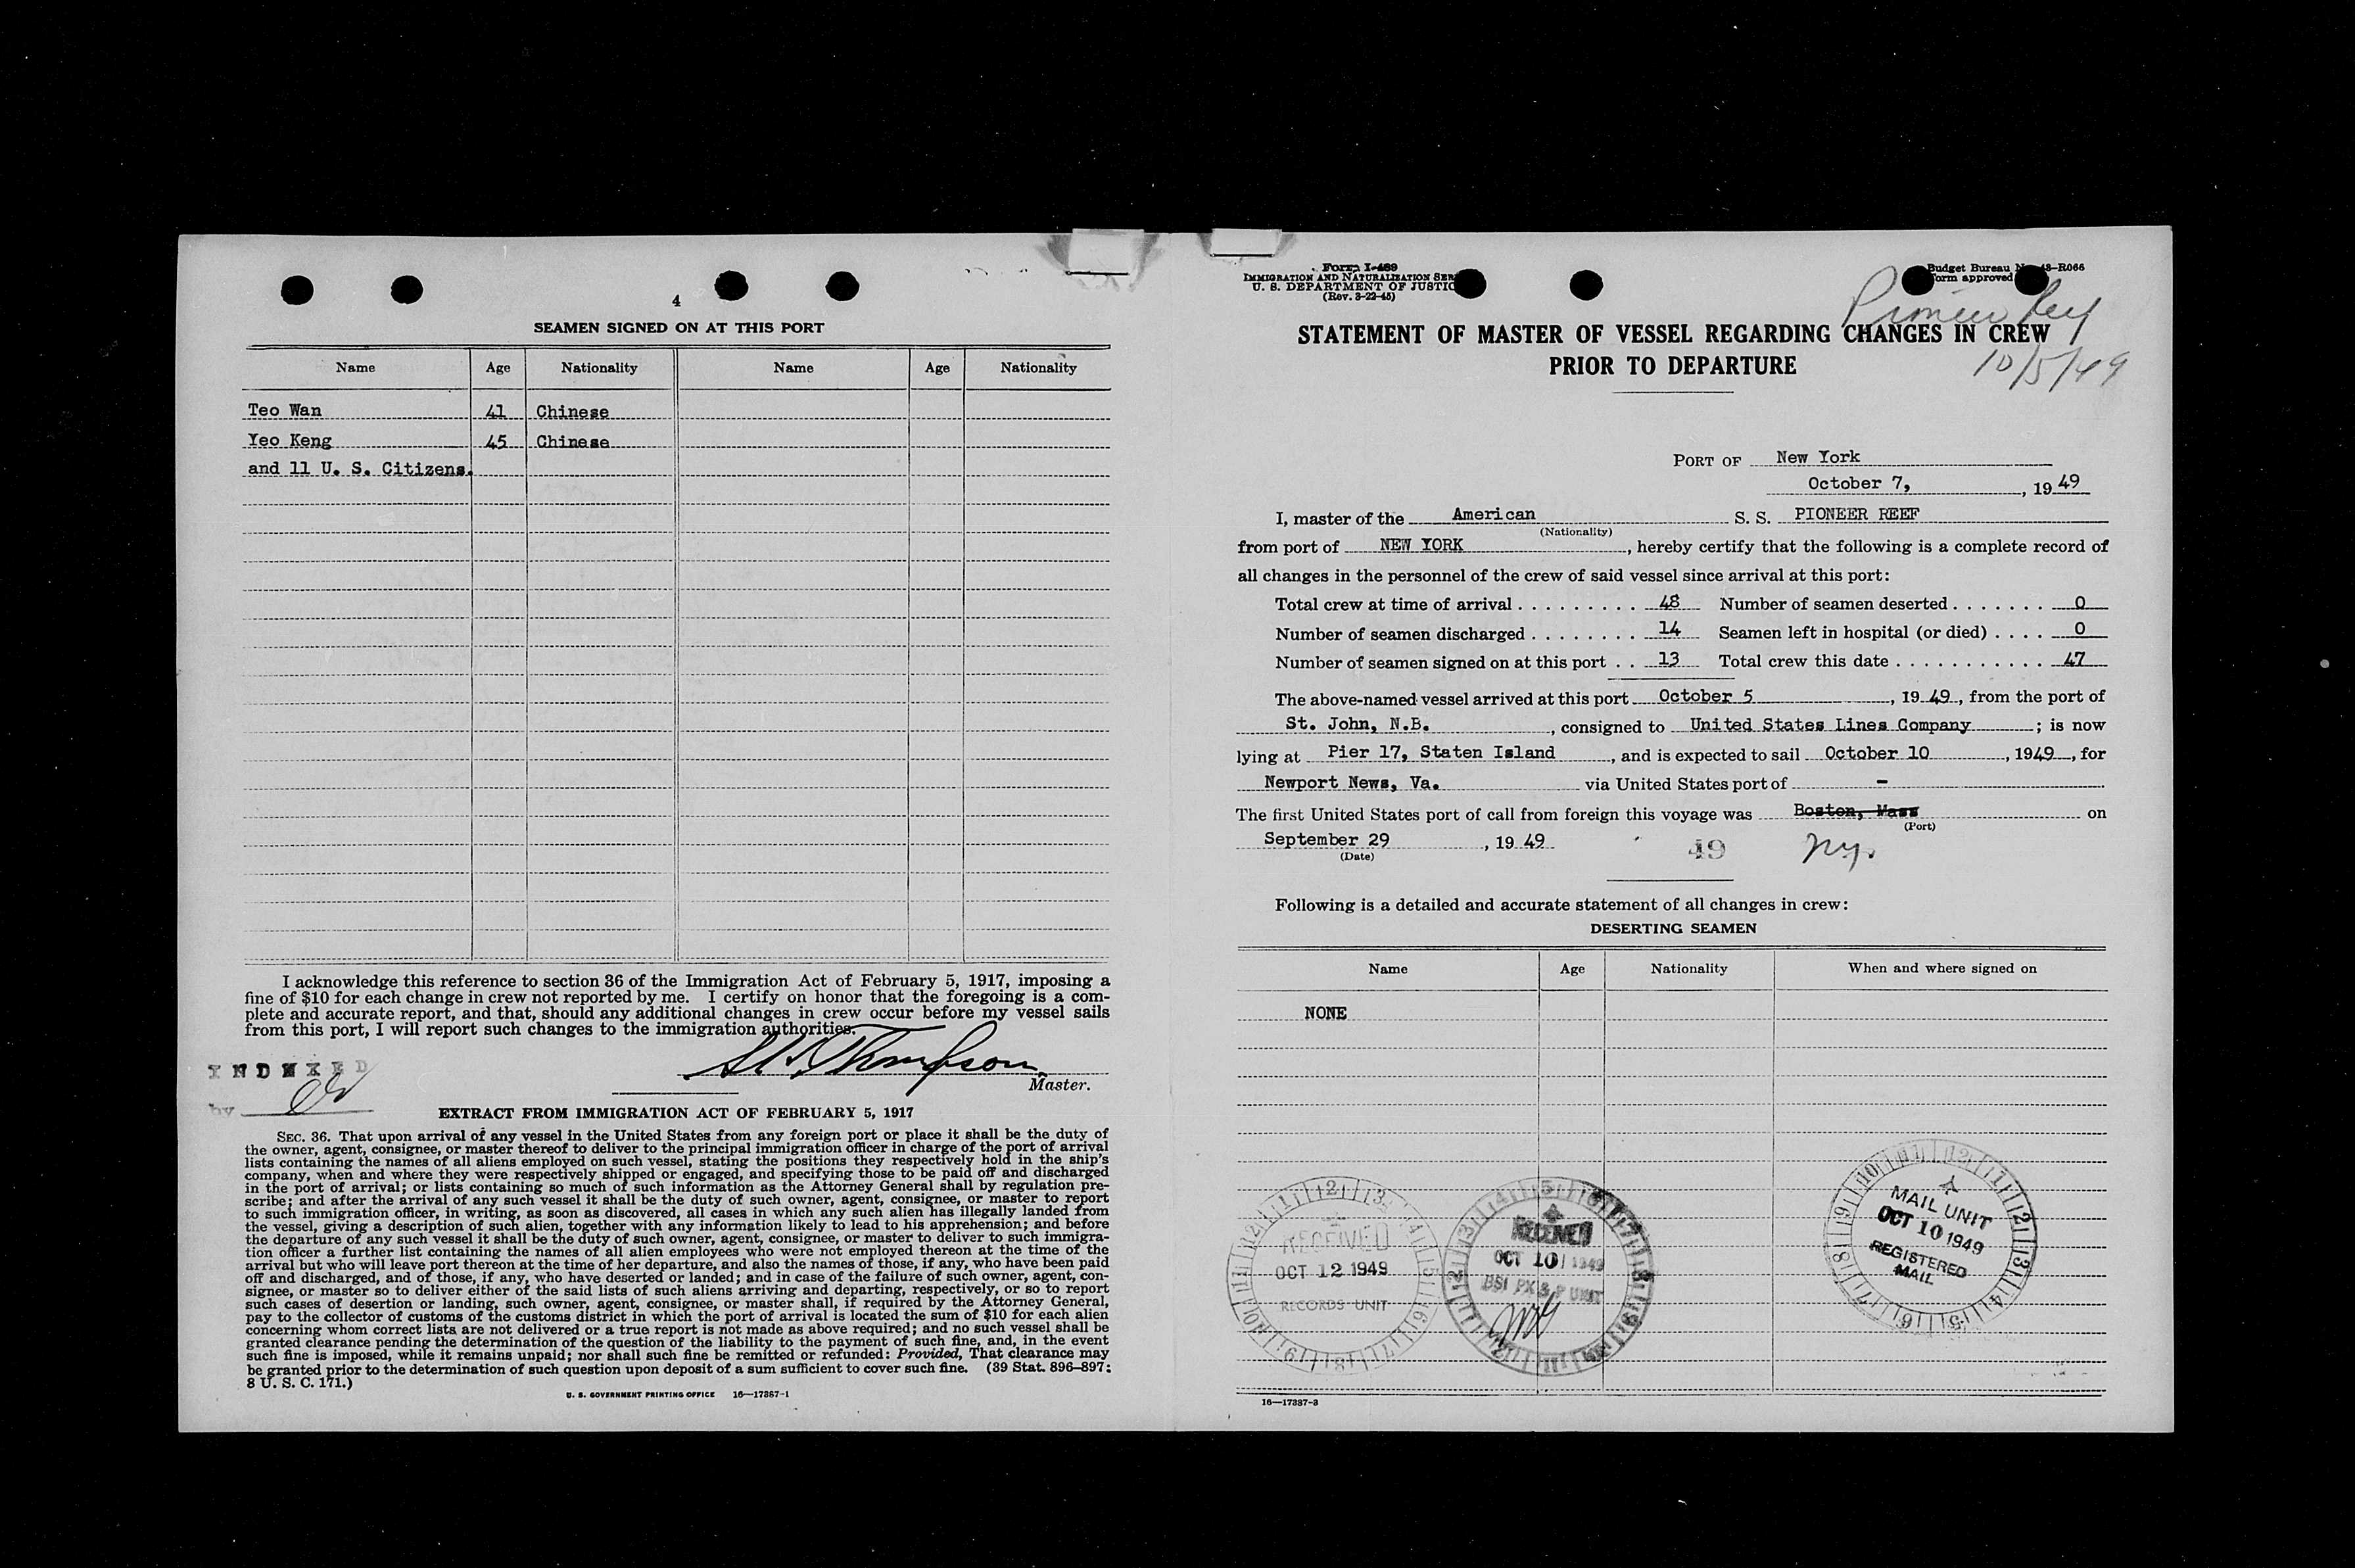 4
SEAMEN SIGNED ON AT THIS PORT
Name Age Nationality Name Age Nationality
Teo Wan 41 Chinese
Yeo Keng 45 Chinese
and 11 U. S. Citizens.
I acknowledge this reference to section 36 of the Immigration Act of February 5, 1917, imposing a
fine of $10 for each change in crew not reported by me. I certify on honor that the foregoing is a com-
plete and accurate report, and that, should any additional changes in crew occur before my vessel sails
from this port, I will report such changes to the immigration authorities.
Thompson
Master.
INDEXED
by
EXTRACT FROM IMMIGRATION ACT OF FEBRUARY 5, 1917
SEC. 36. That upon arrival of any vessel in the United States from any foreign port or place it shall be the duty of
the owner, agent, consignee, or master thereof to deliver to the principal immigration officer in charge of the port of arrival
lists containing the names of all aliens employed on such vessel, stating the positions they respectively hold in the ship's
company, when and where they were respectively shipped or engaged, and specifying those to be paid off and discharged
in the port of arrival; or lists containing so much of such information as the Attorney General shall by regulation pre-
scribe; and after the arrival of any such vessel it shall be the duty of such owner, agent, consignee, or master to report
to such immigration officer, in writing, as soon as discovered, all cases in which any such alien has illegally landed from
the vessel, giving a description of such alien, together with any information likely to lead to his apprehension; and before
the departure of any such vessel it shall be the duty of such owner, agent, consignee, or master to deliver to such immigra-
tion officer a further list containing the names of all alien employees who were not employed thereon at the time of the
arrival but who will leave port thereon at the time of her departure, and also the names of those, if any, who have been paid
off and discharged, and of those, if any, who have deserted or landed; and in case of the failure of such owner, agent, con-
signee, or master so to deliver either of the said lists of such aliens arriving and departing, respectively, or so to report
such cases of desertion or landing, such owner, agent, consignee, or master shall, if required by the Attorney General,
pay to the collector of customs of the customs district in which the port of arrival is located the sum of $10 for each alien
concerning whom correct lists are not delivered or a true report is not made as above required; and no such vessel shall be
granted clearance pending the determination of the question of the liability to the payment of such fine, and, in the event
such fine is imposed, while it remains unpaid; nor shall such fine be remitted or refunded: Provided, That clearance may
be granted prior to the determination of such question upon deposit of a sum sufficient to cover such fine. (39 Stat. 896–897;
8 U. S. C. 171.)
U. S. GOVERNMENT PRINTING OFFICE 16—17387-1
Form I-489
IMMIGRATION AND NATURALIZATION SER
U. S. DEPARTMENT OF JUSTIC
(Rev. 3-22-45)
Budget Bureau No. 43-R066
Form approved
Pioneer Reef
10/5/49
STATEMENT OF MASTER OF VESSEL REGARDING CHANGES IN CREW
PRIOR TO DEPARTURE
PORT OF New York
October 7, , 19 49
I, master of the American S. S. PIONEER REEF
(Nationality)
from port of NEW YORK , hereby certify that the following is a complete record of
all changes in the personnel of the crew of said vessel since arrival at this port:
Total crew at time of arrival . . . . . . . . . 48 Number of seamen deserted . . . . . . . 0
Number of seamen discharged . . . . . . . . 14 Seamen left in hospital (or died) . . . . 0
Number of seamen signed on at this port . . 13 Total crew this date . . . . . . . . . . . 47
The above-named vessel arrived at this port October 5 , 19 49 , from the port of
St. John, N.B. , consigned to United States Lines Company ; is now
lying at Pier 17, Staten Island , and is expected to sail October 10 , 1949 , for
Newport News, Va. via United States port of -
The first United States port of call from foreign this voyage was Boston, Mass on
(Port)
September 29 , 19 49 49 N.Y.
(Date)
Following is a detailed and accurate statement of all changes in crew:
DESERTING SEAMEN
Name Age Nationality When and where signed on
NONE
RECEIVED
OCT 12 1949
RECORDS UNIT
RECEIVED
OCT 10 1949
BSI PX & P UNIT
MAIL UNIT
OCT 10 1949
REGISTERED
MAIL
16—17387-3